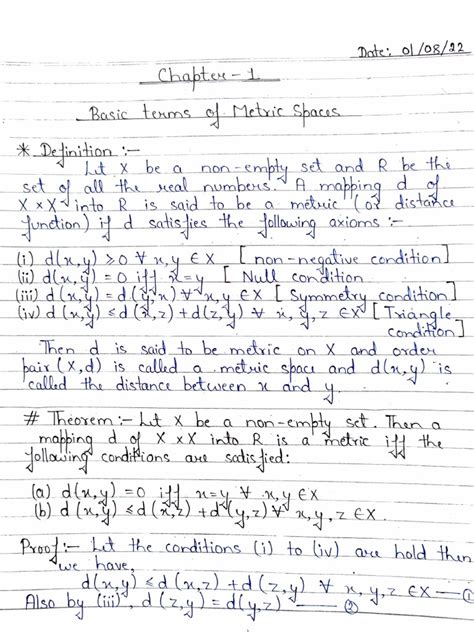 Date: 01/08/22
Chapter-1
Basic terms of Metric Spaces
* Definition :-
Let X be a non-empty set and R be the
set of all the real numbers. A mapping d of
X×X into R is said to be a metric (or distance
function) if d satisfies the following axioms :-
(i) d(x,y) ≥ 0 ∀ x,y ∈ X [ non-negative condition]
(ii) d(x,y) = 0 iff x=y [ Null condition
(iii) d(x,y) = d(y,x) ∀ x,y ∈ X [ Symmetry condition]
(iv) d(x,y) ≤ d(x,z) + d(z,y) ∀ x,y,z ∈ X [ Triangle
condition]
Then d is said to be metric on X and order
pair (X,d) is called a metric space and d(x,y) is
called the distance between x and y.
# Theorem :- Let X be a non-empty set. Then a
mapping d of X×X into R is a metric iff the
following conditions are satisfied:
(a) d(x,y) = 0 iff x=y ∀ x,y ∈ X
(b) d(x,y) ≤ d(x,z) + d(y,z) ∀ x,y,z ∈ X.
Proof :- Let the conditions (i) to (iv) are hold then
we have,
d(x,y) ≤ d(x,z) + d(z,y) ∀ x,y,z ∈ X — ①
Also by (iii), d(z,y) = d(y,z) — ②